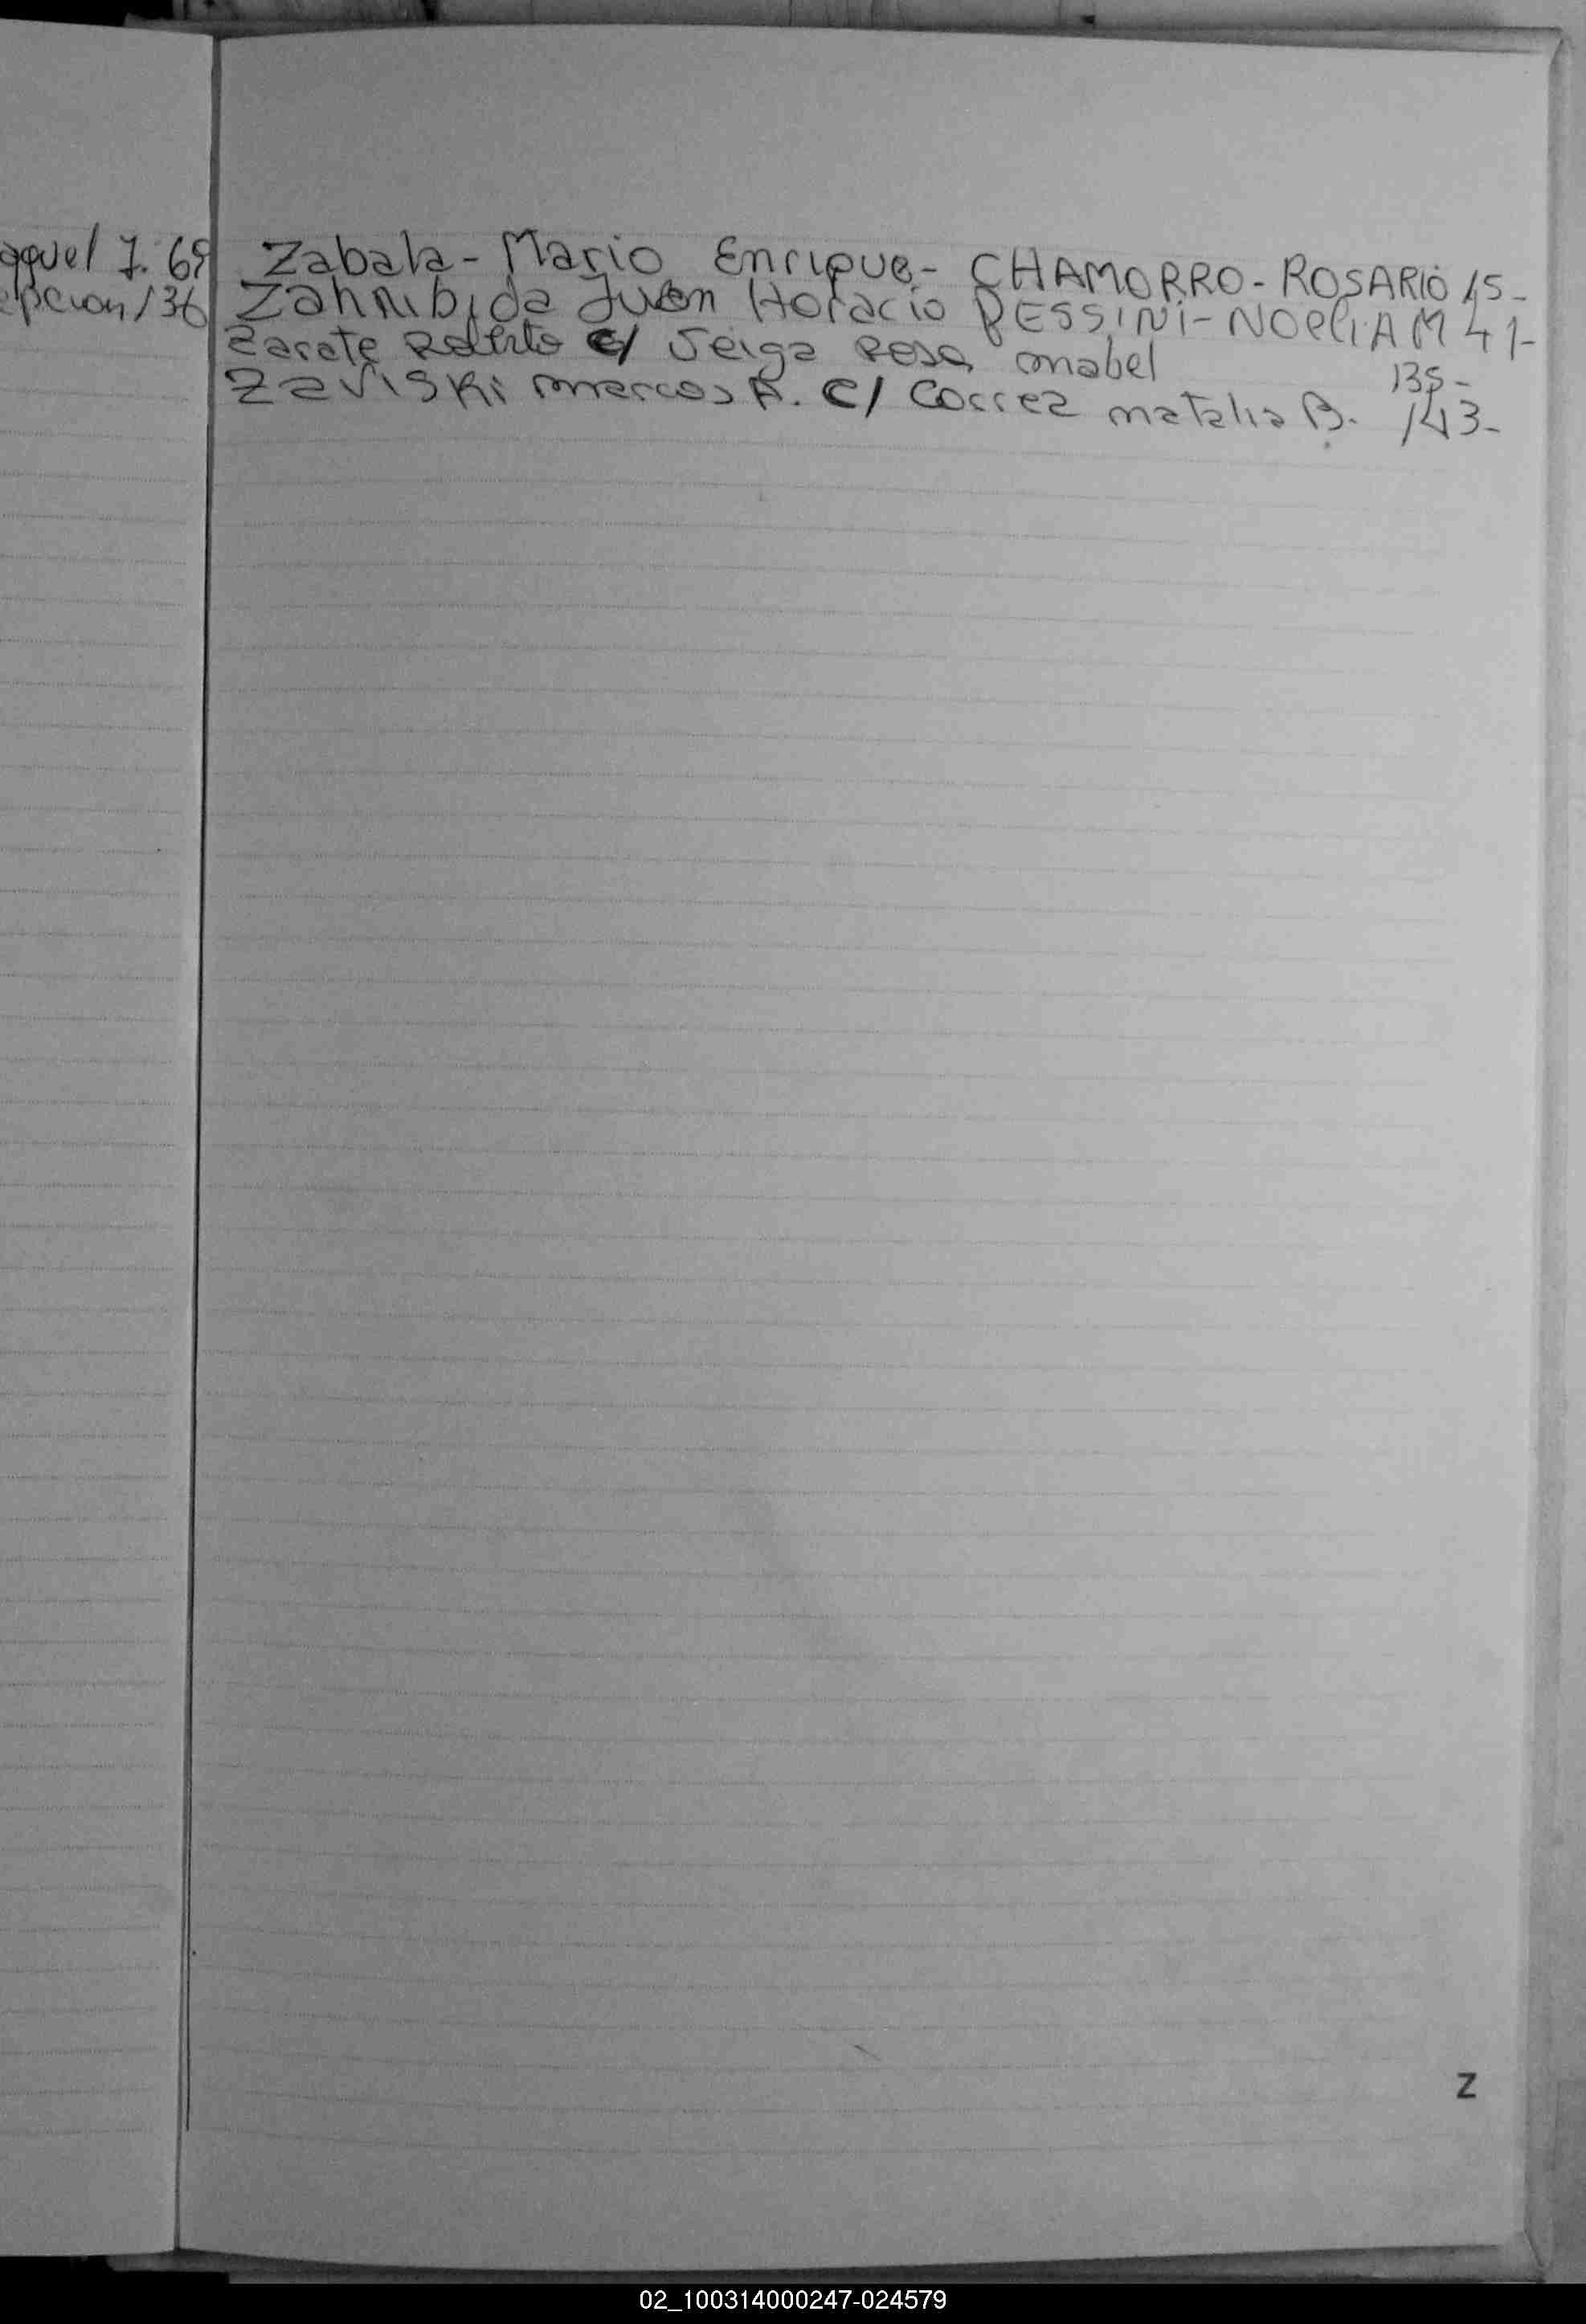 aquel J. 69
epcion 136
Zabala - Mario Enrique - CHAMORRO - ROSARIO 15 -
Juan Horacio PESSINI - NOELIA M 41 -
Zarate Roberto c/ Rosa mabel 135 -
Zaviski marcos A. c/ Correa natalia B. 143 -
Z
02_100314000247-024579